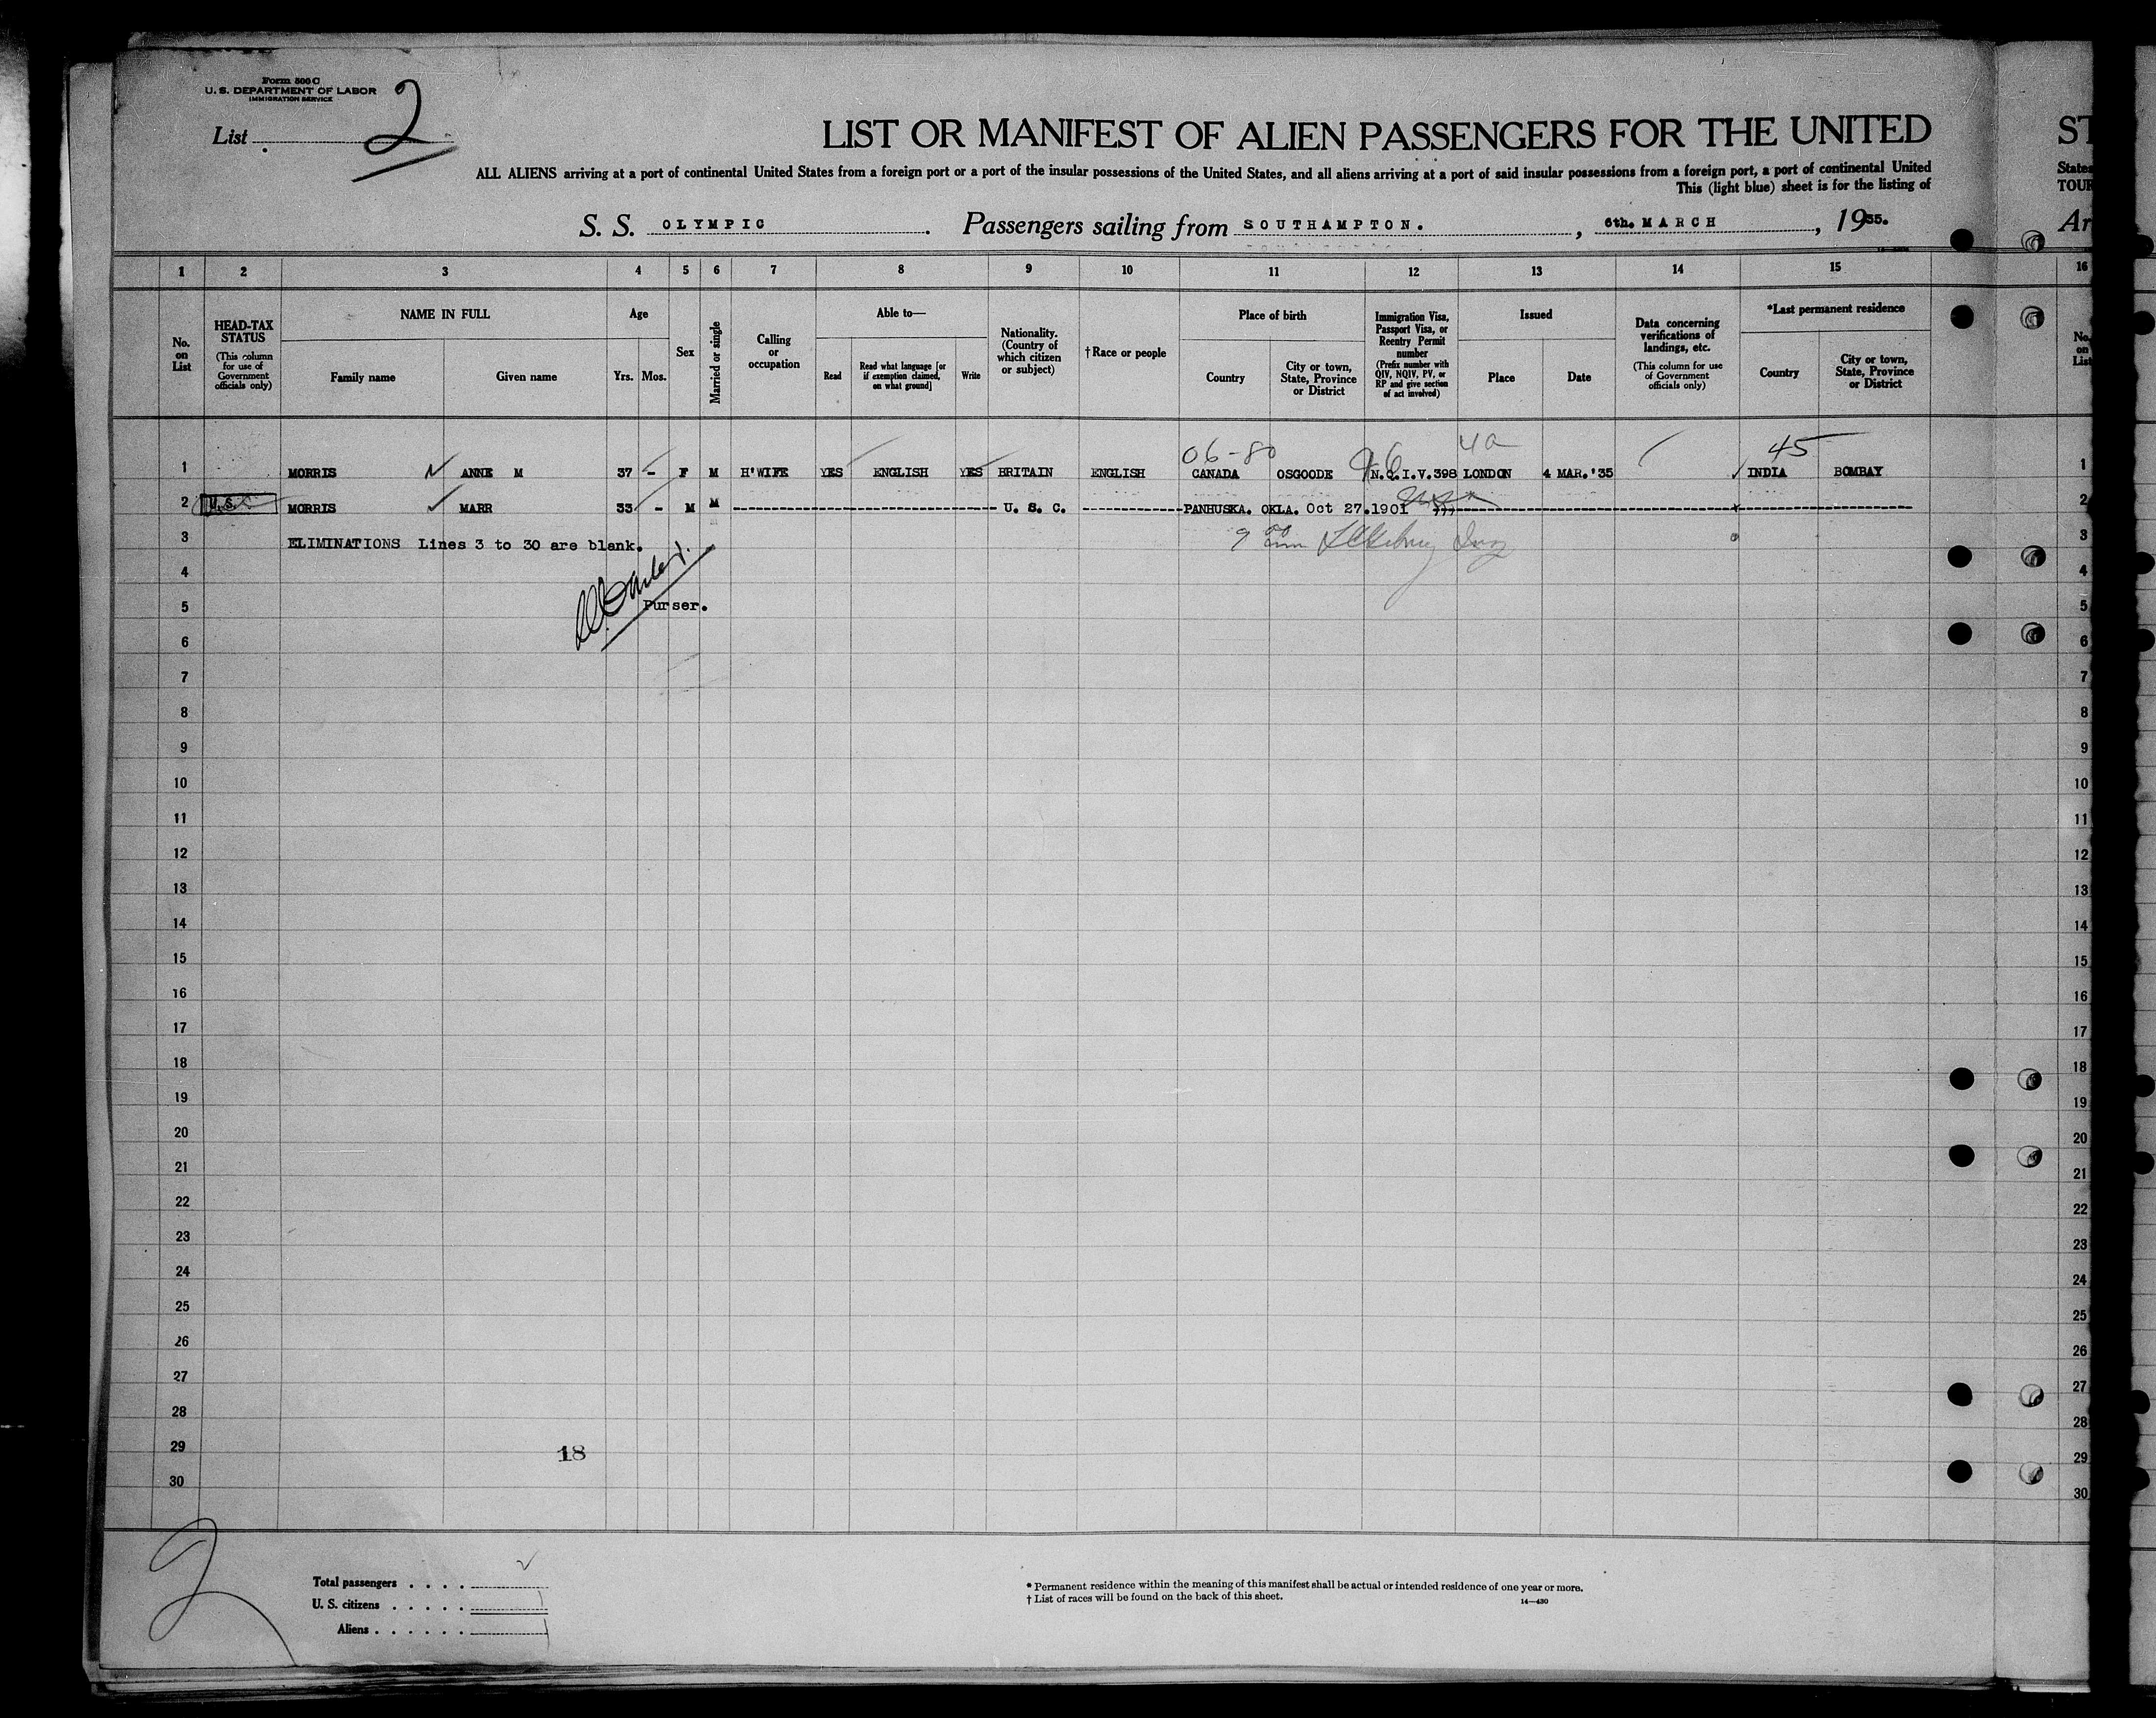 Form 500 C
U. S. DEPARTMENT OF LABOR
IMMIGRATION SERVICE
List 2
LIST OR MANIFEST OF ALIEN PASSENGERS FOR THE UNITED
ST
ALL ALIENS arriving at a port of continental United States from a foreign port or a port of the insular possessions of the United States, and all aliens arriving at a port of said insular possessions from a foreign port, a port of continental United
States
This (light blue) sheet is for the listing of
TOUR
S. S. OLYMPIC. Passengers sailing from SOUTHAMPTON., 6th. MARCH, 1935.
Ar
1 2 3 4 5 6 7 8 9 10 11 12 13 14 15 16
No. on List
HEAD-TAX STATUS (This column for use of Government officials only)
NAME IN FULL
Family name Given name
Age
Yrs. Mos.
Sex
Married or single
Calling or occupation
Able to—
Read
Read what language [or if exemption claimed, on what ground]
Write
Nationality. (Country of which citizen or subject)
†Race or people
Place of birth
Country
City or town, State, Province or District
Immigration Visa, Passport Visa, or Reentry Permit number (Prefix number with QIV, NQIV, PV, or RP and give section of act involved)
Issued
Place Date
Data concerning verifications of landings, etc. (This column for use of Government officials only)
*Last permanent residence
Country
City or town, State, Province or District
No. on List
06-80 4a 45
1 MORRIS ANNE M 37 - F M H'WIFE YES ENGLISH YES BRITAIN ENGLISH CANADA OSGOODE N.Q.I.V.398 LONDON 4 MAR.'35 INDIA BOMBAY 1
2 U.S. MORRIS MARR 33 - M M U. S. C. PANHUSKA. OKLA. Oct 27.1901 2
3 ELIMINATIONS Lines 3 to 30 are blank. 3
4 4
5 Purser. 5
6 6
7 7
8 8
9 9
10 10
11 11
12 12
13 13
14 14
15 15
16 16
17 17
18 18
19 19
20 20
21 21
22 22
23 23
24 24
25 25
26 26
27 27
28 28
29 18 29
30 30
2
Total passengers . . . .
U. S. citizens . . . . .
Aliens . . . . . .
* Permanent residence within the meaning of this manifest shall be actual or intended residence of one year or more.
† List of races will be found on the back of this sheet.
14—430